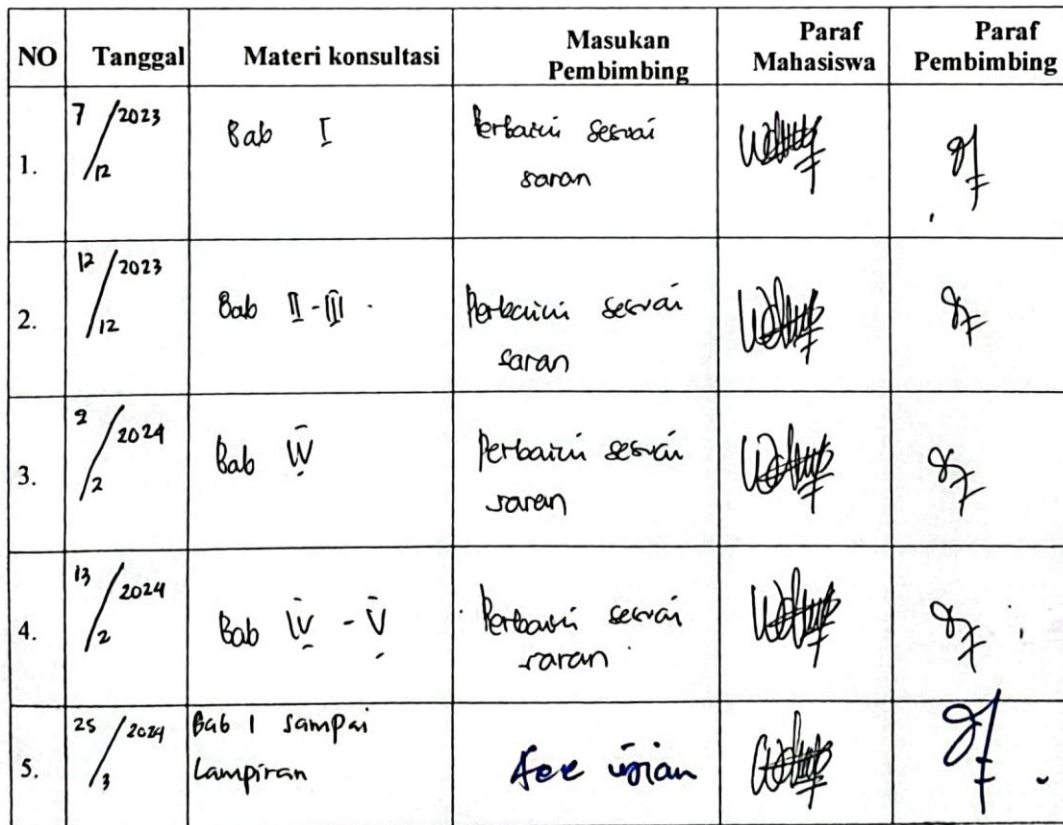 NO Tanggal Materi konsultasi Masukan Pembimbing Paraf Mahasiswa Paraf Pembimbing
1. 7/12 2023 Bab I Perbaiki sesuai
saran
2. 12/12 2023 Bab II - III Perbaiki sesuai
saran
3. 2/2024 Bab IV Perbaiki sesuai
saran
4. 13/2 2024 Bab IV - V Perbaiki sesuai
saran
5. 25/3 2024 Bab 1 sampai
Lampiran Acc ujian